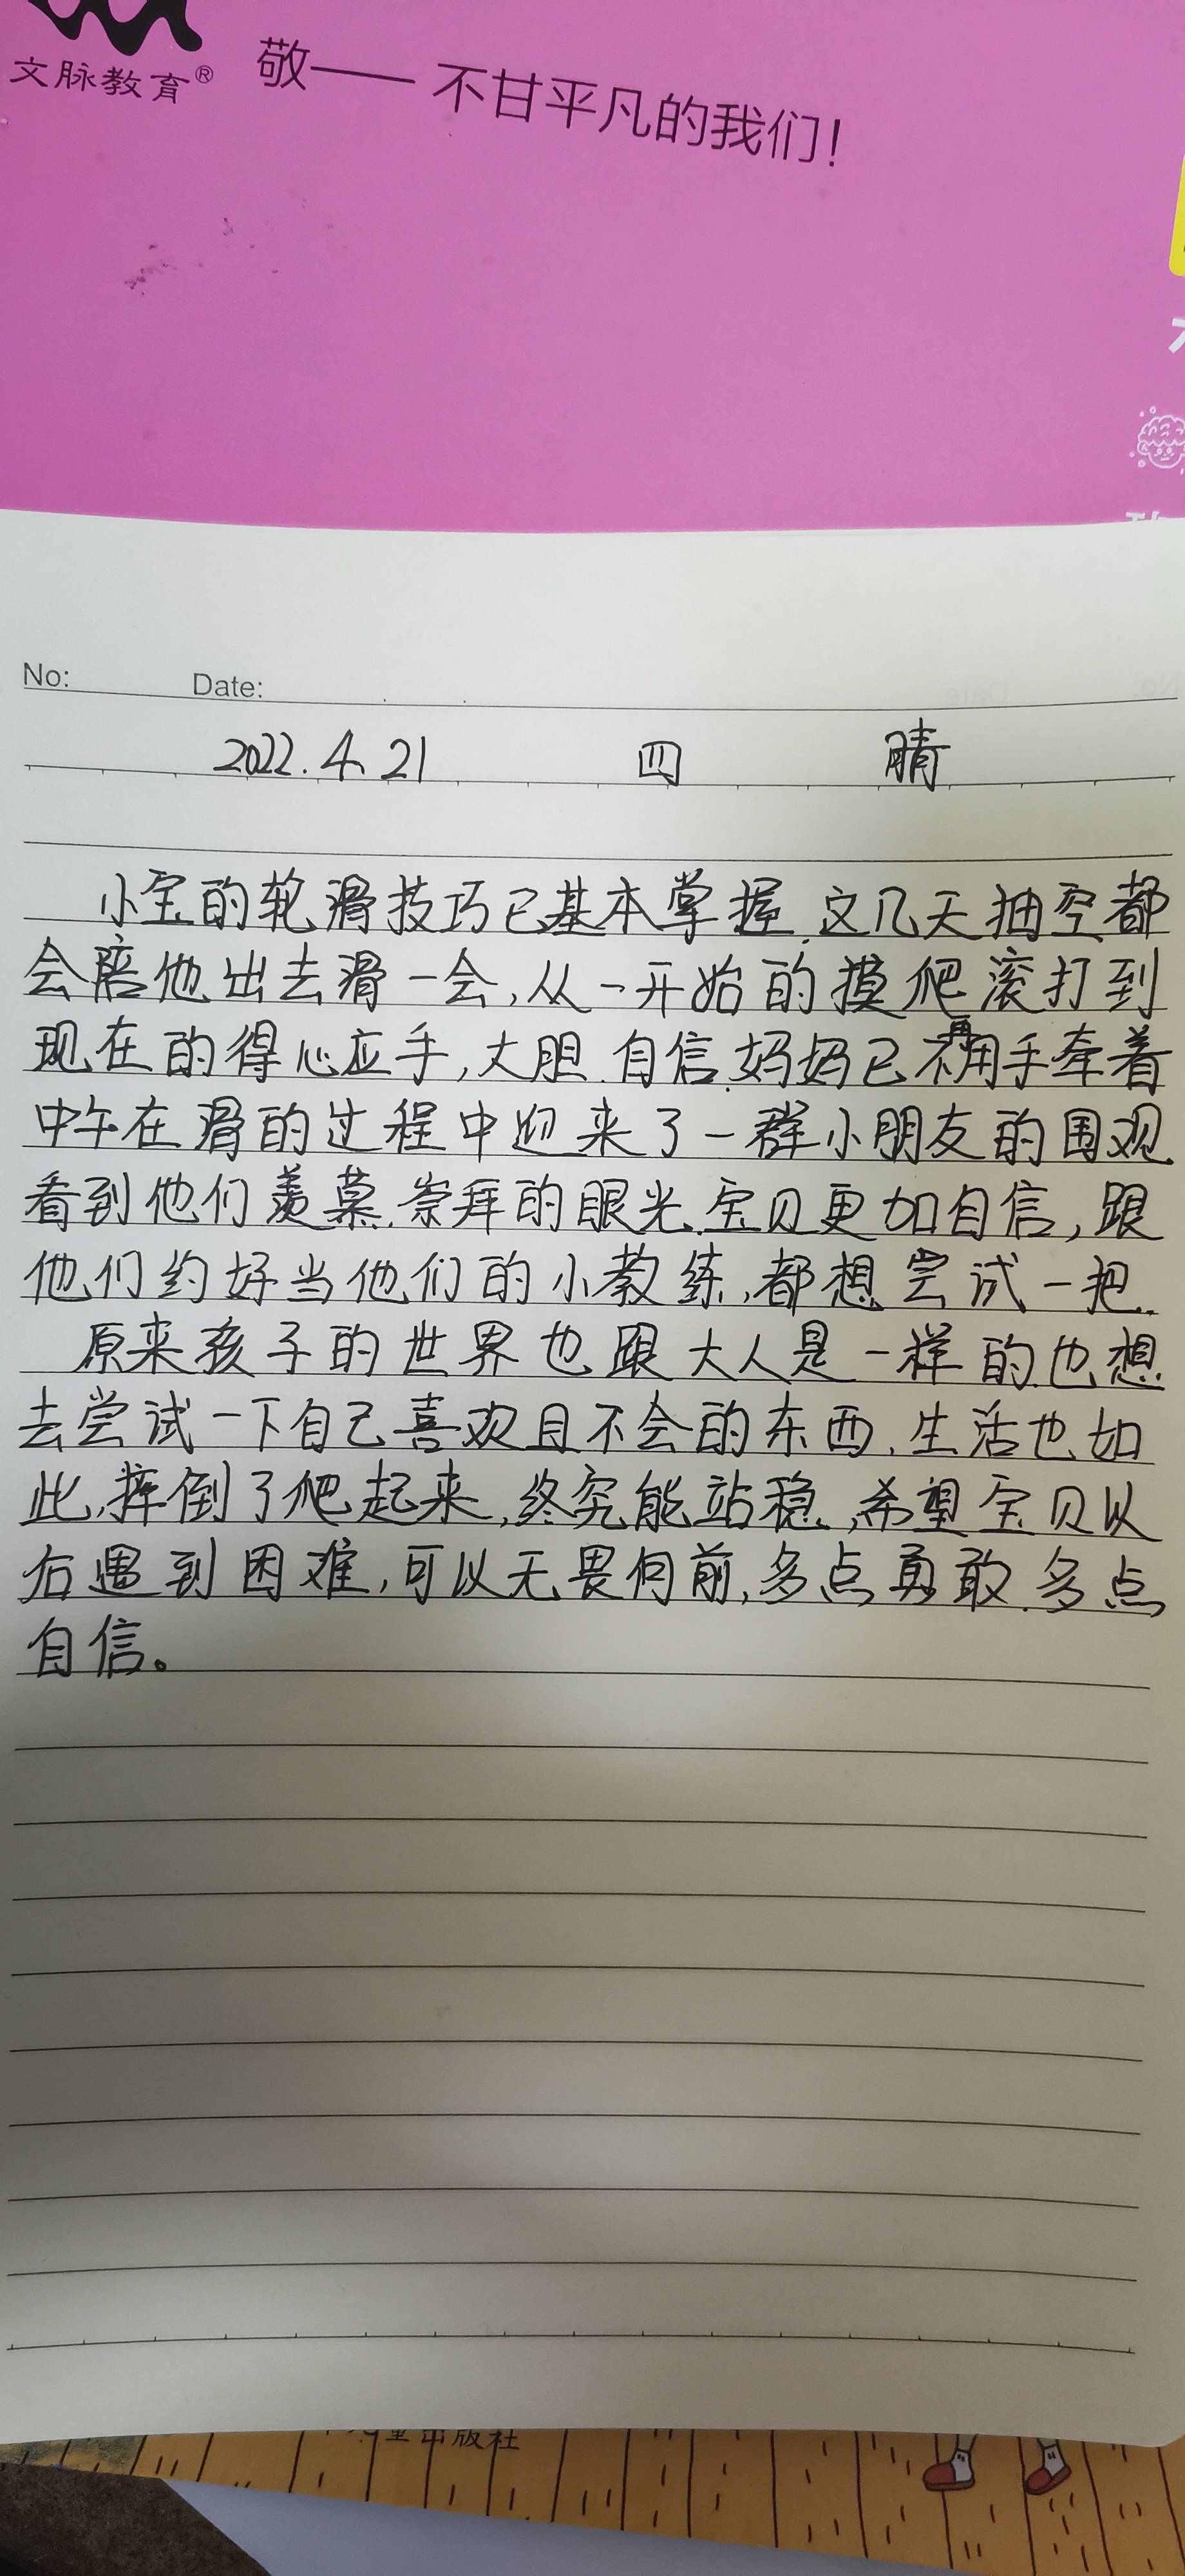 文脉教育®
敬——不甘平凡的我们！
No: Date:
2022.4.21 四 晴
小宝的轮滑技巧已基本掌握,这几天抽空都
会陪他出去滑一会,从一开始的摸爬滚打到
现在的得心应手,大胆.自信.妈妈已不再用手牵着
中午在滑的过程中迎来了一群小朋友的围观
看到他们羡慕.崇拜的眼光.宝贝更加自信,跟
他们约好当他们的小教练,都想尝试一把.
原来孩子的世界也跟大人是一样的.也想
去尝试一下自己喜欢且不会的东西.生活也如
此,摔倒了爬起来,终究能站稳,希望宝贝以
后遇到困难,可以无畏向前,多点勇敢.多点
自信。
出版社